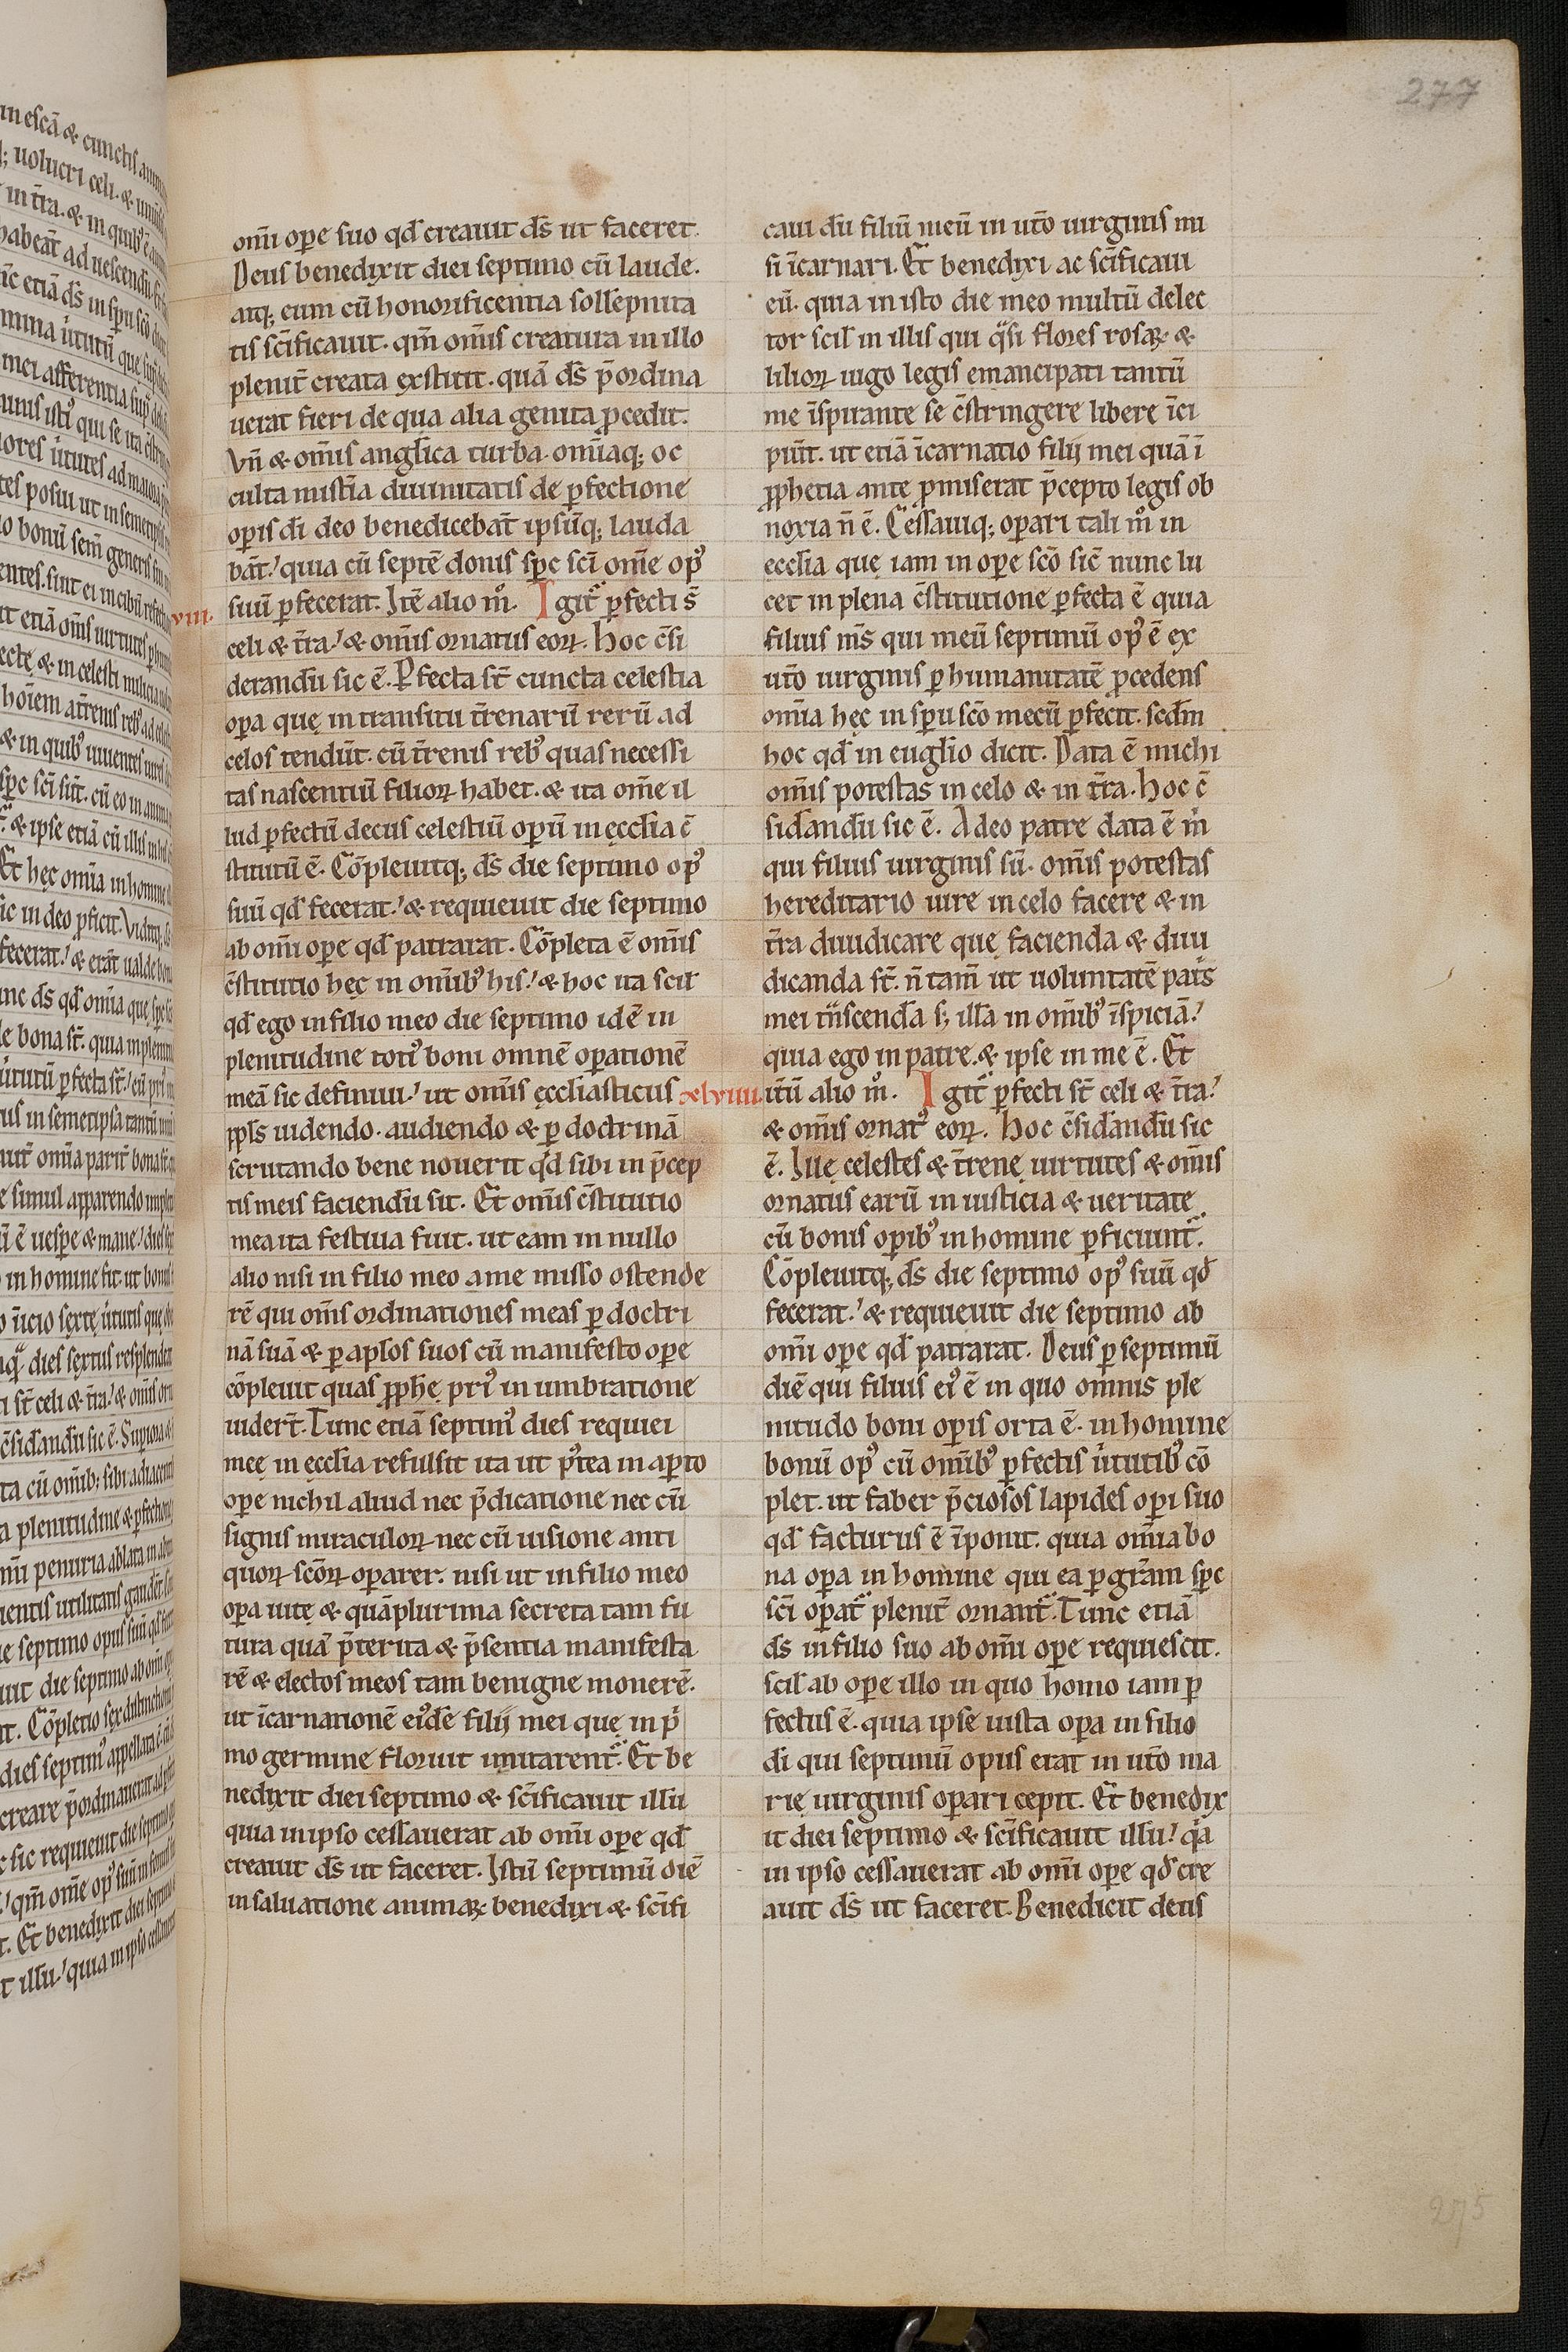 277
om̄i oꝑe suo qd̄ creauit ds̄ ut faceret.
Deus benedixit diei septimo cū laude.
atq; eum cū honorificentia sollēpnita
tis sc̄ificauit. qm̄ om̄is creatura in illo
plenit̄ creata exstitit. quā ds̄ p̄ordina
uerat fieri de qua alia genita ꝓcedit.
Vn̄ & om̄is angl̄ica turba. om̄iaq; oc
culta mist̄ia diuinitatis de ꝑfectione
oꝑis dī deo benedicebāt ipsūq; lauda
bāt. quia cū septē donis sp̄c sc̄i om̄e op᷒
suū ꝑfecerat. Itē alio m̊. Igit̄ ꝑfecti s̄
celi & t̄ra. & om̄is ornatus eoꝝ. Hoc c̄si
derandū sic ē. Ꝑfecta st̄ cuncta celestia
oꝑa quę in transitu t̄renarū rerū ad
celos tendūt. cū t̄renis reb᷒ quas necessi
tas nascentiū filioꝝ habet. & ita om̄e il
lud ꝑfectū decus celestiū oꝑū in ęcclīa c̄
stitutū ē. Cōpleuitq; ds̄ die septimo op᷒
suū qd̄ fecerat. & requieuit die septimo
ab om̄i oꝑe qd̄ patrarat. Cōpleta ē om̄is
c̄stitutio hęc in om̄ib᷒ his. & hoc ita scil̄
qd̄ ego in filio meo die septimo idē in
plenitudine toti᷒ boni omnē oꝑationē
meā sic definiui. ut om̄is ęccl̄iasticus
ppl̄s uidendo. audiendo & ꝑ doctrinā
scrutando bene nouerit qd̄ sibi in p̄cep
tis meis faciendū sit. Et om̄is c̄stitutio
mea ita festiua fuit. ut eam in nullo
alio nisi in filio meo a me misso ostende
rē qui om̄s ordinationes meas ꝑ doctri
nā suā & ꝑ apl̄os suos cū manifesto oꝑe
cōpleuit quas ꝓph̄ę pri᷒ in umbratione
uidert̄. Tunc etiā septim᷒ dies requiei
meę in ęcclīa refulsit ita ut p᷒tea in aꝑto
oꝑe nichil aliud nec p̄dicatione nec cū
signis miraculoꝝ nec cū uisione anti
quoꝝ sc̄oꝝ oꝑarer. nisi ut in filio meo
oꝑa uitę & quāplurima secreta tam fu
tura quā p̄terita & p̄sentia manifesta
rē & electos meos tam benigne monerē.
ut īcarnationē ei᷒dē filij mei quę in pⁱ
mo germine floruit imitarent̄. Et be
nedixit diei septimo & sc̄ificauit illū
quia in ipso cessauerat ab om̄i oꝑe qd̄
creauit ds̄ ut faceret. Istū septimū diē
in saluatione animaꝝ benedixi & sc̄ifi
caui dū filiū meū in ut̄o uirginis mi
si īcarnari. Et benedixi ac sc̄ificaui
eū. quia in isto die meo multū delec
tor scil̄ in illis qui qͣsi flores rosaꝝ &
lilioꝝ iugo legis emancipati tantū
me īspirante se c̄stringere libere īci
piūt. ut etiā īcarnatio filij mei quā ī
ꝓphetia ante ꝓmiserat p̄cepto legis ob
noxia n̄ ē. Cessauiq; oꝑari tali m̊ in
ecclīa quę iam in oꝑe sc̄o sic̄ nunc lu
cet in plena c̄stitutione ꝑfecta ē quia
filius m̄s qui meū septimū op᷒ ē ex
ut̄o uirginis ꝑ humanitatē ꝓcedens
om̄ia hęc in sp̄u sc̄o mecū ꝑfecit. scd̄m
hoc qd̄ in euglīo dicit. Data ē michi
om̄is potestas in celo & in t̄ra. Hoc c̄
sid̄andū sic ē. A deo patre data ē m̄
qui filius uirginis sū. om̄is potestas
hereditario iure in celo facere & in
t̄ra diiudicare quę facienda & diiu
dicanda st̄. n̄ tam̄ ut uoluntatē patⁱs
mei tⁿscend̄a s; illā in om̄ib᷒ īspiciā.
quia ego in patre. & ipse in me ē. Et
xlviiii. it̄ū alio m̊. Igit̄ ꝑfecti st̄ celi & t̄ra.
& om̄is ornat᷒ eoꝝ. Hoc c̄sid̄andū sic
ē. Iuę celestes & t̄renę uirtutes & om̄is
ornatus earū in iusticia & ueritate
cū bonis oꝑib᷒ in homine ꝑficiunt̄.
Cōpleuitq; ds̄ die septimo op᷒ suū qd̄
fecerat. & requieuit die septimo ab
om̄i oꝑe qd̄ patrarat. Deus ꝑ septimū
diē qui filius ei᷒ ē in quo omnis ple
nitudo boni oꝑis orta ē. in homine
bonū op᷒ cū om̄ib᷒ ꝑfectis uⁱtutib᷒ cō
plet. ut faber p̄ciosos lapides oꝑi suo
qd̄ facturus ē īponit. quia om̄ia bo
na oꝑa in homine qui ea ꝑ gr̄am sp̄c
sc̄i oꝑat̄ plenit̄ ornant̄. Tunc etiā
ds̄ in filio suo ab om̄i oꝑe requiescit.
scil̄ ab oꝑe illo in quo homo iam ꝑ
fectus ē. quia ipse iusta oꝑa in filio
dī qui septimū opus erat in ut̄o ma
rię uirginis oꝑari cepit. Et benedix
it diei septimo & sc̄ificauit illū. qͣa
in ipso cessauerat ab om̄i oꝑe qd̄ cre
auit ds̄ ut faceret. Benedicit deus
275